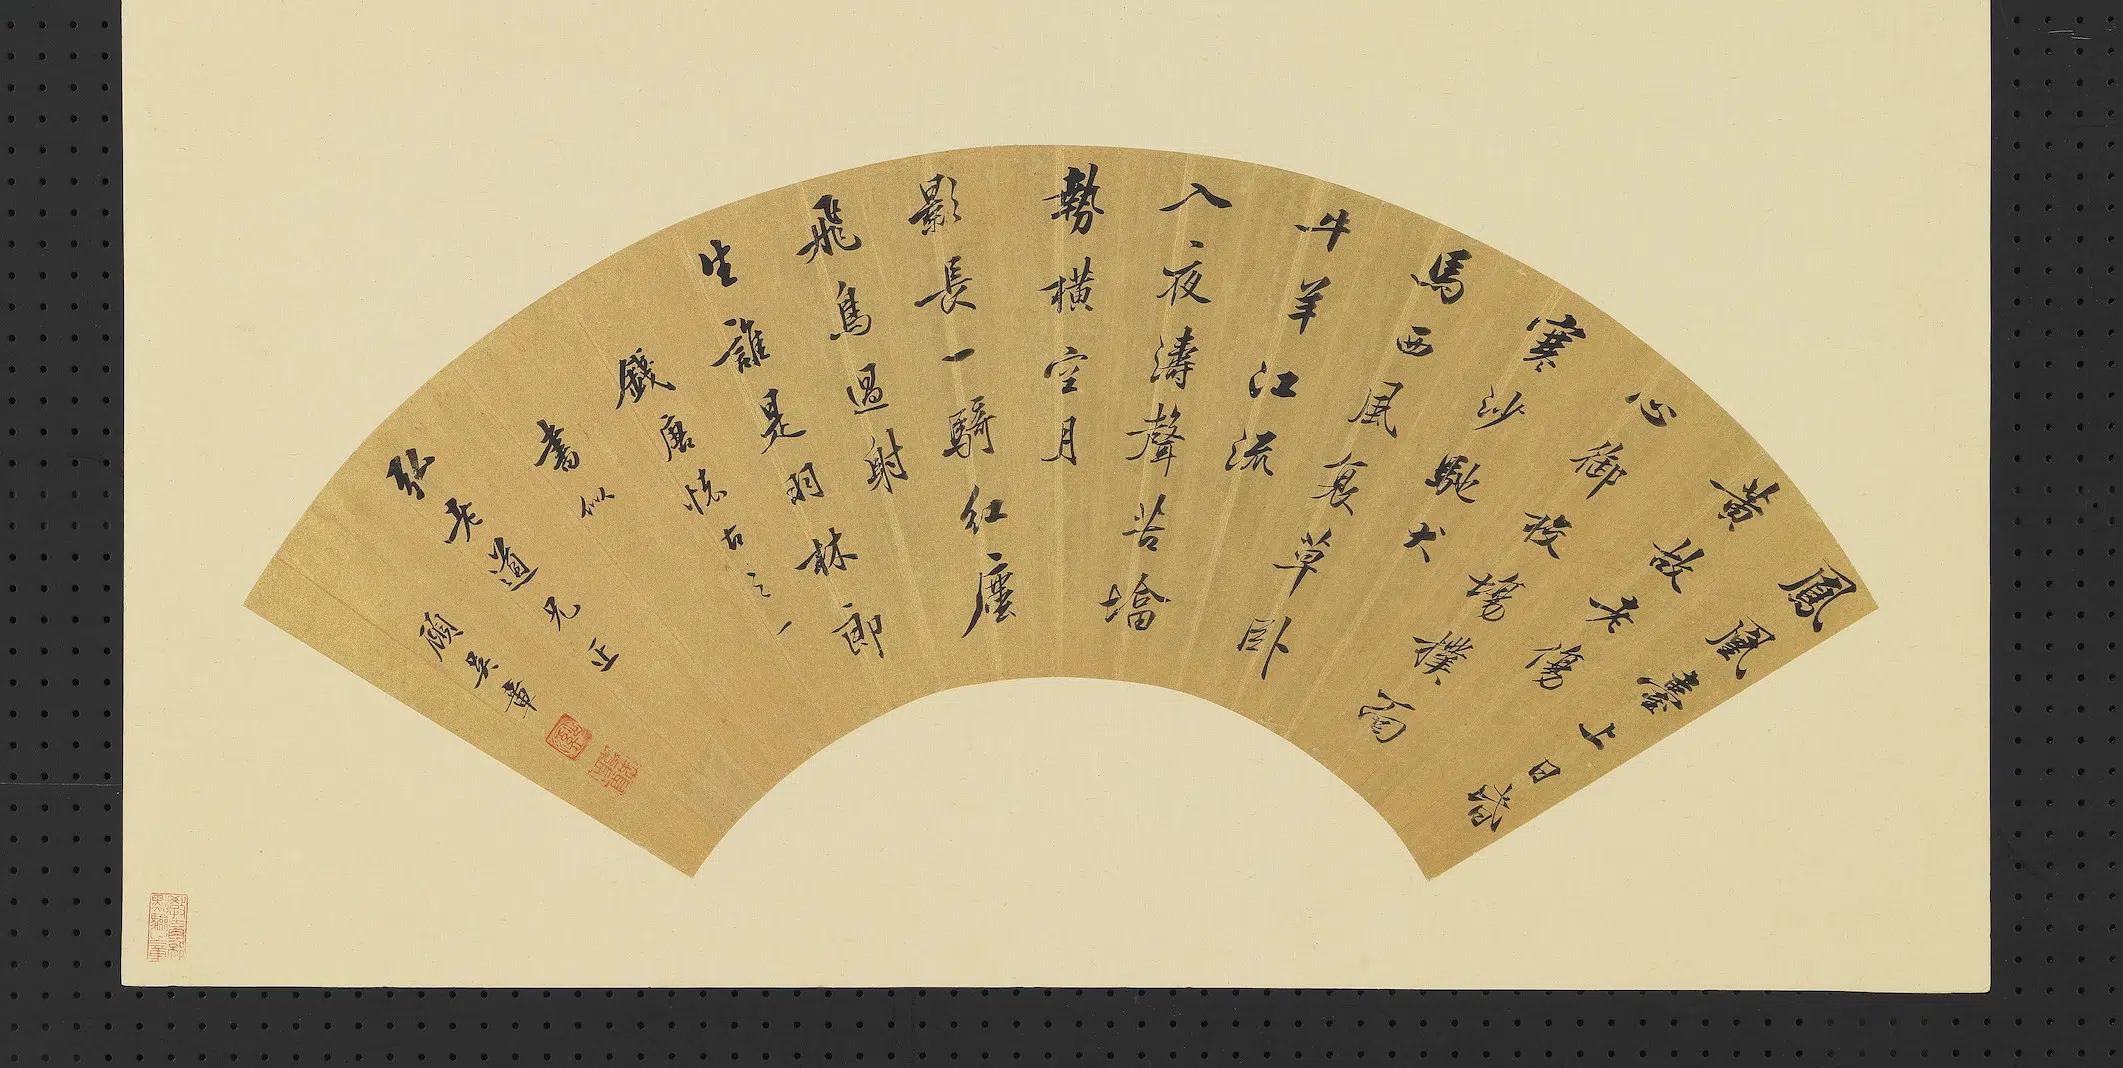 鳳凰臺上日昏
黃故老傷
心御校塲撲面
寒沙馳犬
馬西風衰草臥
牛羊江流
入夜濤聲苦墖
勢橫空月
影長一騎紅塵
飛鳥過射
生誰是羽林郎
錢唐懷古之一
書似
弘老道兄正
顧 章